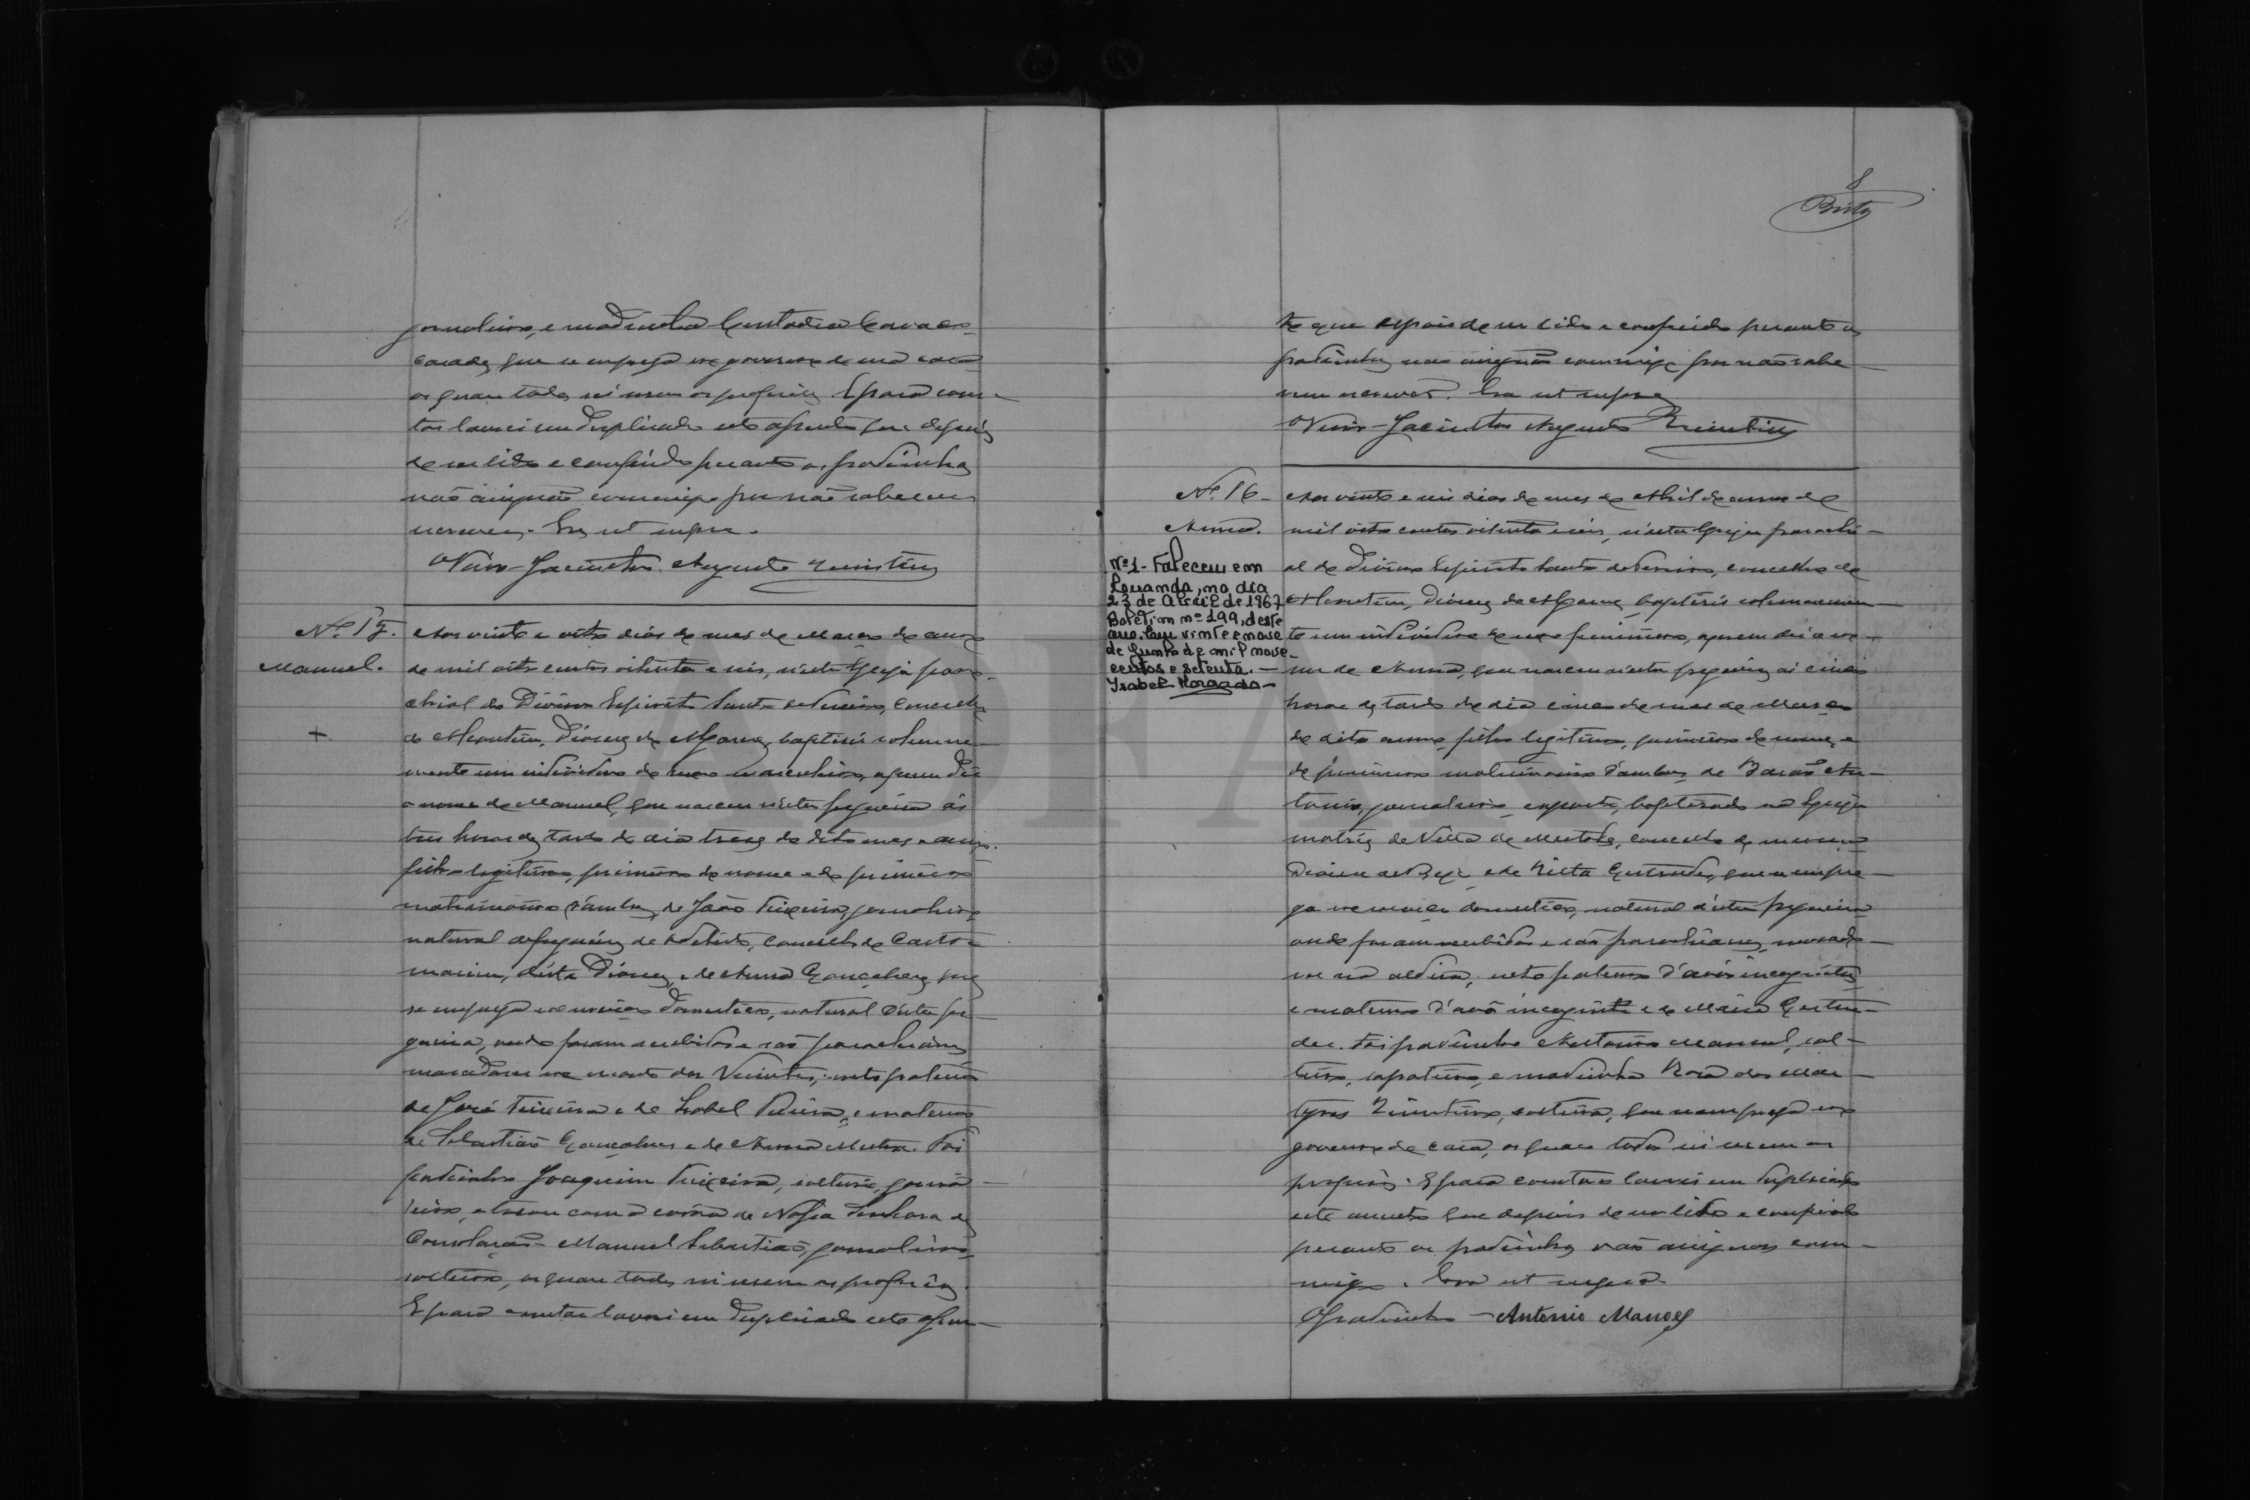 jornaleiro, e madrinha Custodia
casada, que se emprega no governo de sua casa
os quaes todos sei serem os proprios. E para cons-
tar lavrei em duplicado este assento que depois
de ser lido e conferido perante os padrinhos
não assignão commigo por não saberem
escrever. Era ut supra.
O Vigario Jacintho Augusto
Nº 15. Aos vinte e oito dias do mes de Março do anno
Manuel. de mil oito centos oitenta e seis, n'esta Igreja paro-
chial do Divino Espirito Santo de Pereiro, Concelho
de Alcoutim, Diocese do Algarve, baptisei solemne-
mente um individuo do sexo masculino, a quem dei
o nome de Manuel, que nasceu n'esta freguesia ás
tres horas da tarde do dia treze do dito mes e anno,
filho legitimo, primeiro do nome e do primeiro
matrimonio d'ambos, de João Teixeira, jornaleiro
natural da freguesia de Odeleite, concelho de Castro
marim, desta Diocese, e de Anna Gonçalves, que
se emprega no serviço domestico, natural d'esta fre-
guesia, onde foram recebidos e são parochianos
moradores no monte dos Vicentes; neto paterno
de José Teixeira e de Isabel Pereira, e materno
de Sebastião Gonçalves e de Anna Mestra. Foi
padrinho Joaquim Teixeira, solteiro, jorna-
leiro, e tocou com a corôa de Nossa Senhora da
Consolação Manuel Sebastião, jornaleiro,
solteiro, os quaes todos sei serem os proprios.
E para constar lavrei em duplicado este assen-
8
to que depois de ser lido e conferido perante os
padrinhos não assignão commigo por não sabe-
rem escrever. Era ut supra
O Vigario Jacintho Augusto
Nº 16. Aos vinte e seis dias do mes de Abril do anno de
Anna. mil oito centos oitenta e seis, n'esta Igreja parochi-
al do Divino Espirito Santo de Pereiro, concelho de
Alcoutim, Diocese do Algarve, baptisei solemnemen-
te um individuo do sexo feminino, a quem dei o no-
me de Anna, que nasceu n'esta freguesia ás cinco
horas da tarde do dia cinco do mes de Março
do dito anno, filha legitima, primeira do nome, e
do primeiro matrimonio d'ambos, de An-
tonio, jornaleiro, exposto, baptisado na Igreja
matriz da Villa de Mertola, concelho da mesma
Diocese de Beja, e de Ritta Gertrudes, que se empre-
ga no serviço domestico, natural d'esta freguesia
onde foram recebidos e são parochianos, morado-
res na aldeia; neta paterna d'avós incognitos
e materna d'avô incognito e de Maria Gertru-
des. Foi padrinho Antonio Manuel, sol-
teiro, sapateiro, e madrinha Rosa dos Mar-
tyres, solteira, que se emprega no
governo de casa, os quaes todos sei serem os
proprios. E para constar lavrei em duplicado
este assento que depois de ser lido e conferido
perante os padrinhos não assignou com-
migo. Era ut supra.
O padrinho - Antonio Manoel
Nº 1 - Faleceu em
Louanda, no dia
23 de Abril de 1967
Boletim nº 199, deste
ano. Em vinte e nove
de Junho de mil nove-
centos e setenta. -
Isabel Morgado -